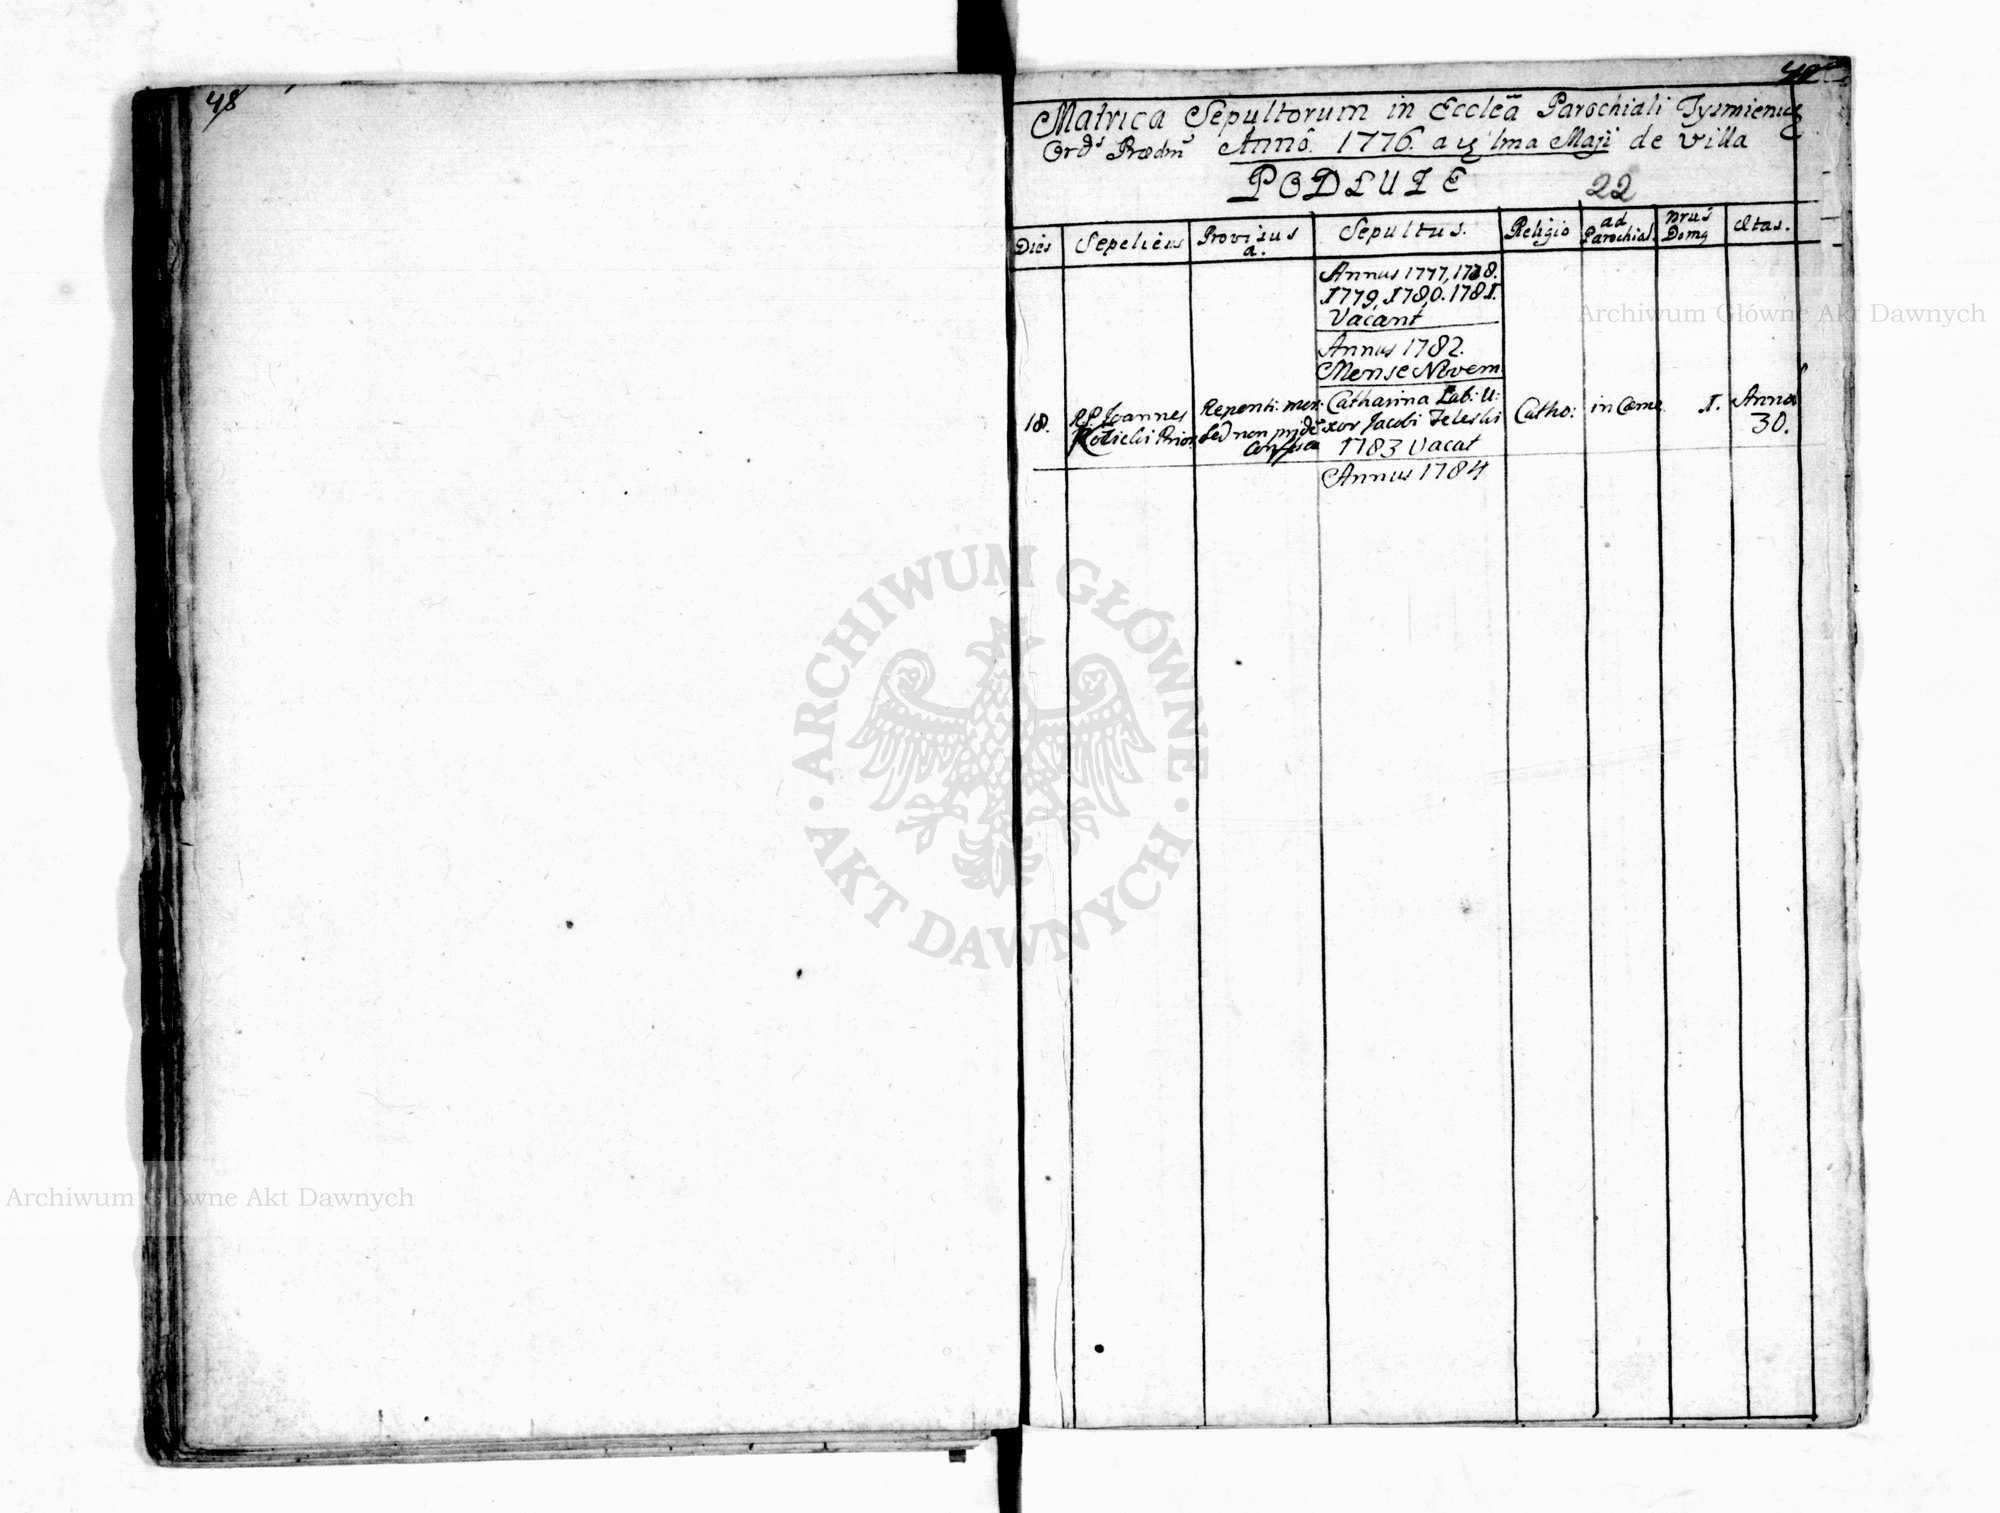 48
49
Matrica Sepultorum in Ecclẽa Parochiali Tysmienicz
Ordˢ Prædm̃ Annô. 1776. a 1ma Maji de Villa
PODLUZE 22
Dies
Sepeliens
Provisus
a.
Sepultus.
Religio
ad
Parochial.
nrus
Domg
Ætas.
Annus 1777, 1778.
1779, 1780. 1781.
Vacant
Annus 1782.
Mense Novem
18.
RP. Joannes
Prior
Repenti: mor:
sed non pridẽ
confessa
Catharina Lab: U:
xor Jacobi Teleski
1783 Vacat
Catho:
in Cæme
1.
Annor
30.
Annus 1784
Archiwum Główne Akt Dawnych
ARCHIWUM GŁÓWNE
AKT DAWNYCH
Archiwum Główne Akt Dawnych